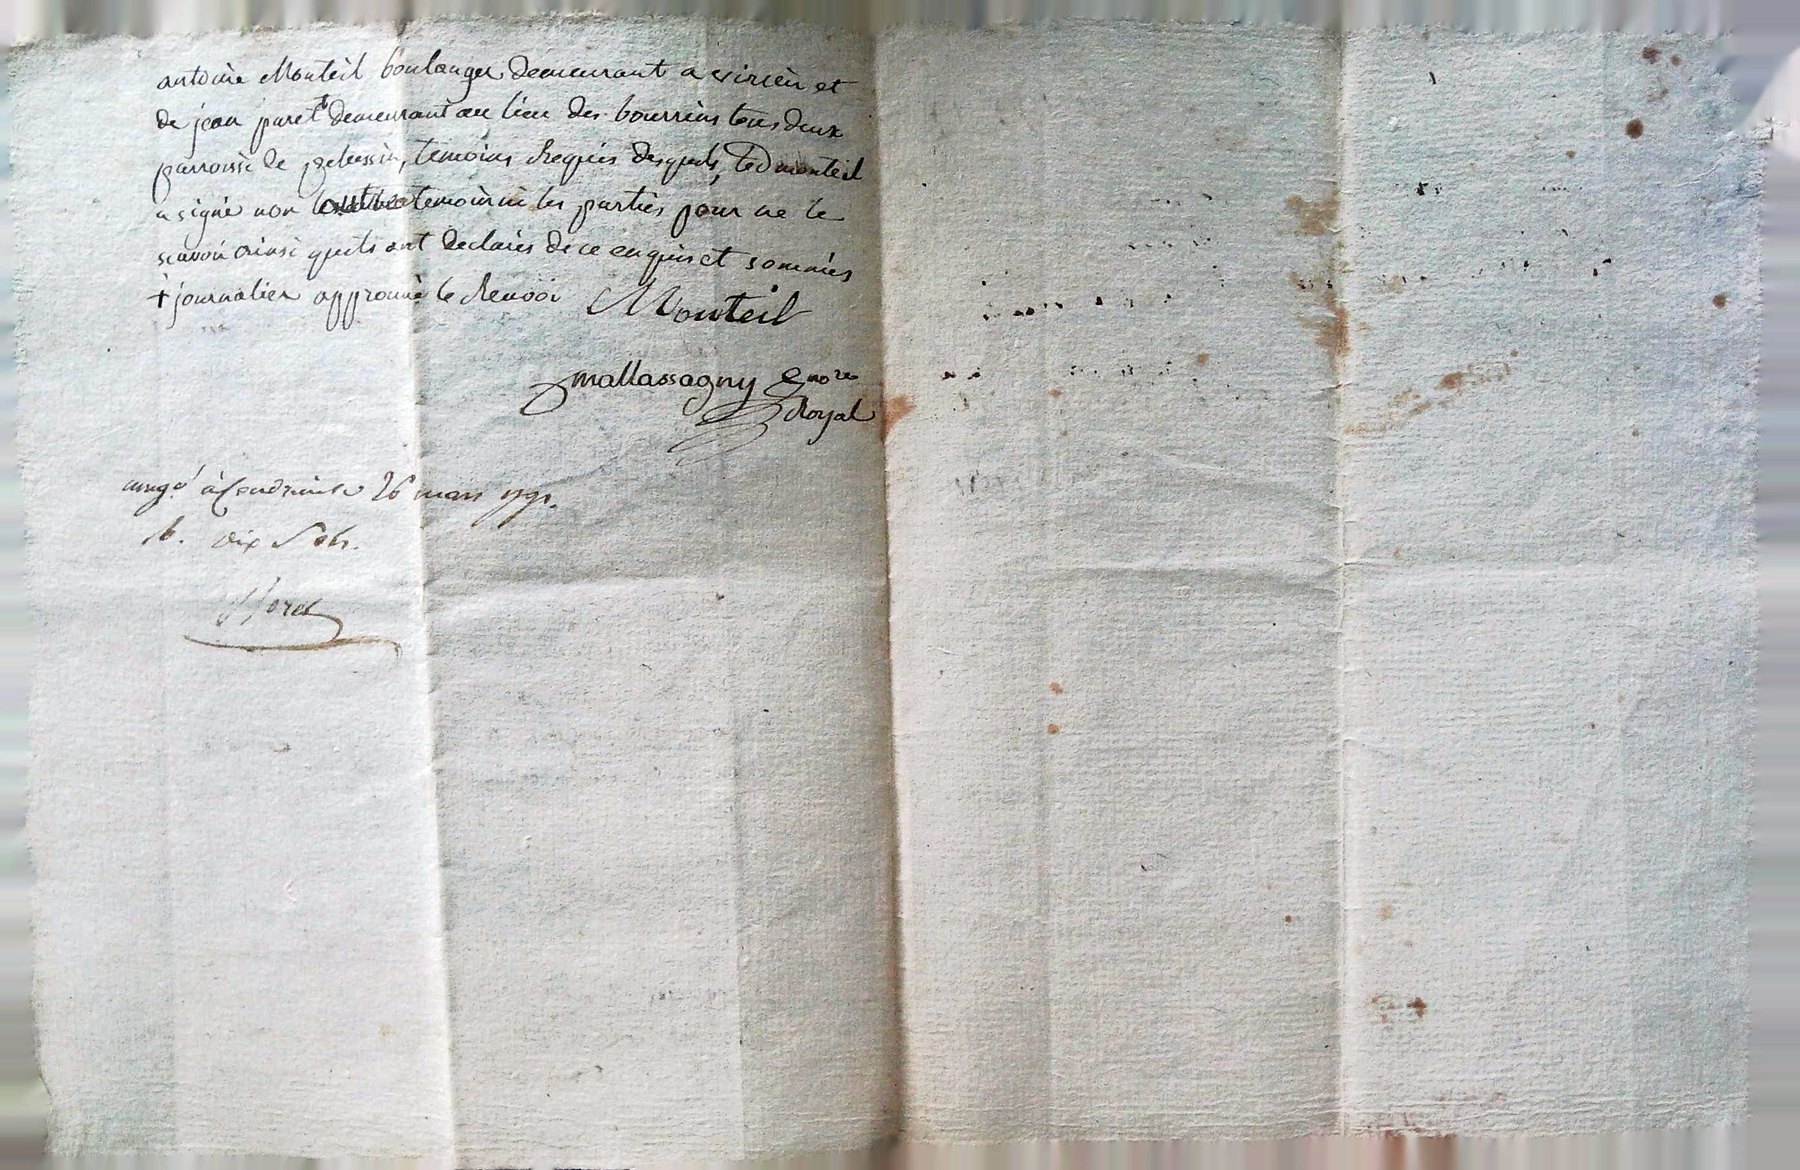 antoine Monteil boulanger demeurant a virieu et
de jean paret + demeurant au lieu des bourrins tous deux
parroisse de pelussin, temoins Requis desquels, led monteil
a signé non temoin ni les parties pour ne le
scavoir ainsi quils ont declarés de ce enquis et sommés
+ journalier approuvé le Renvoi Monteil
mallassagny nore
Royal
à Condrieu le 26 mars 1791.
dix sols.